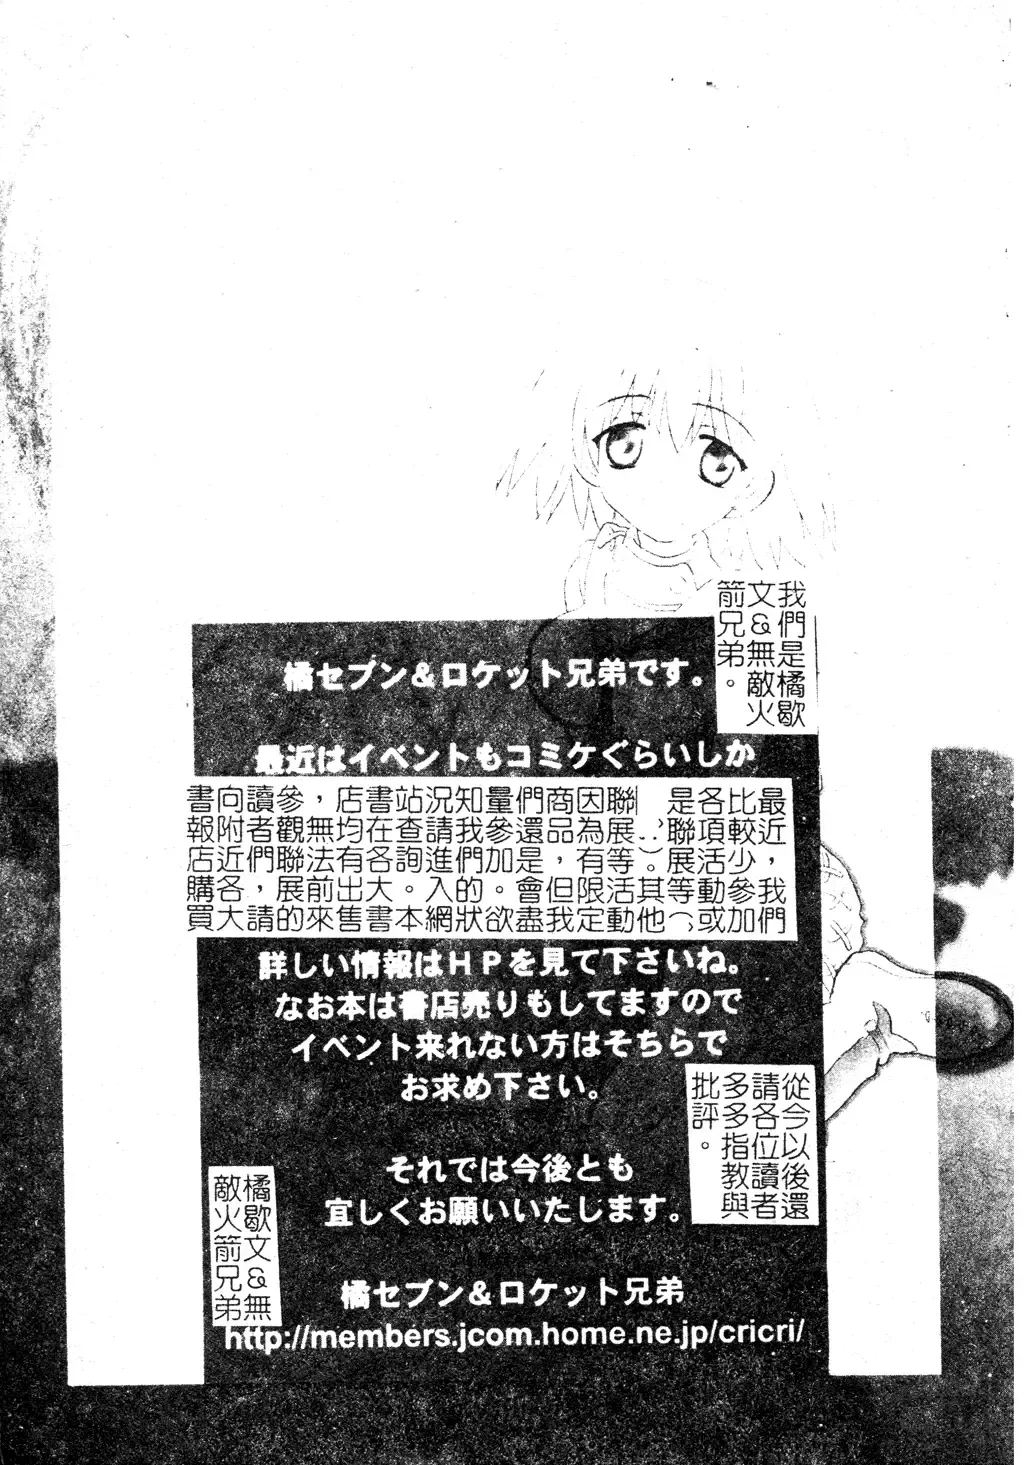 我們是橘歇
文&無敵火
箭兄弟。
橘セブン&ロケット兄弟です。
最近はイベントもコミケぐらいしか
最近，我們
比較少參加
各項活動或
是聯展等（
︵其他
聯展等）活動
因為有限定
商品，但我
們還是會盡
量參加的欲
知我們。狀
況請進入網
站查詢。本
書在各大書
店均有出售
，無法前來
參觀聯展的
讀者們，請
向附近各大
書報店購買
詳しい情報はHPを見て下さいね。
なお本は書店売りもしてますので
イベント来れない方はそちらで
お求め下さい。
從今以後還
請各位讀者
多多指教與
批評。
それでは今後とも
宜しくお願いいたします。
橘歇文&無
敵火箭兄弟
橘セブン&ロケット兄弟
http://members.jcom.home.ne.jp/cricri/